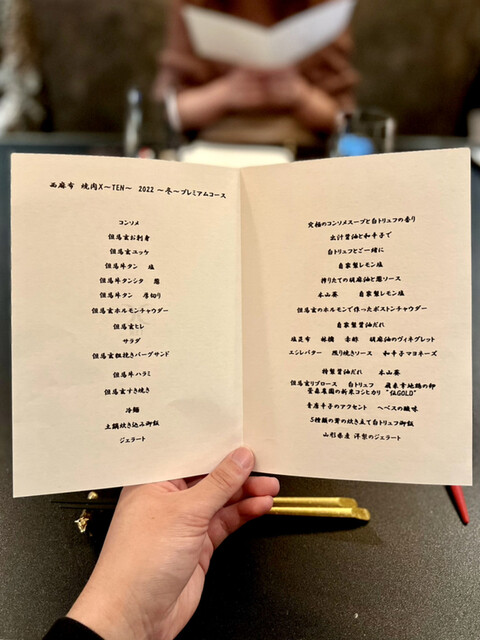 西麻布 焼肉X〜TEN〜 2022 〜冬〜プレミアムコース
コンソメ
但馬玄お刺身
但馬玄ユッケ
但馬牛タン 塩
但馬牛タンシタ 葱
但馬牛タン 厚切り
但馬玄ホルモンチャウダー
但馬玄ヒレ
サラダ
但馬玄粗挽きバーグサンド
但馬牛ハラミ
但馬玄すき焼き
冷麺
土鍋炊き込み御飯
ジェラート
究極のコンソメスープと白トリュフの香り
出汁醤油と和辛子で
白トリュフとご一緒に
自家製レモン塩
搾りたての胡麻油と葱ソース
本山葵 自家製レモン塩
但馬玄のホルモンで作ったボストンチャウダー
自家製醤油だれ
塩昆布 林檎 胡麻油のヴィネグレット
エシレバター 照り焼きソース 和辛子マヨネーズ
特製醤油だれ 本山葵
但馬玄リブロース 白トリュフ 地鶏の卵
農園の新米コシヒカリ “GOLD”
青唐辛子のアクセント ヘベスの酸味
5種類の茸の炊き立て白トリュフ御飯
山形県産 洋梨のジェラート